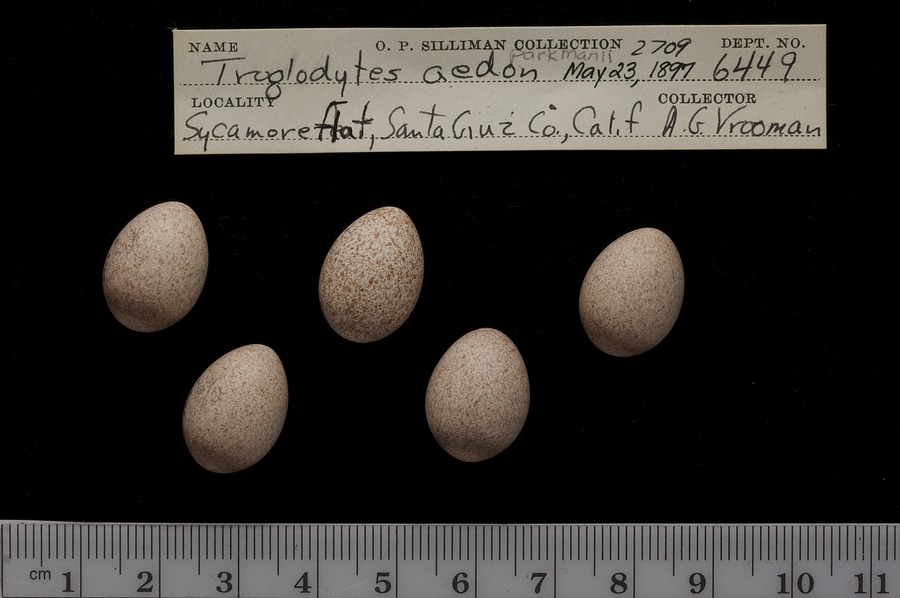 NAME O. P. SILLIMAN COLLECTION 2709 DEPT. NO.
parkmanii
Troglodytes aedon May 23, 1897 6449
LOCALITY COLLECTOR
Sycamore Flat, Santa Cruz Co., Calif A. G. Vrooman
cm 1 2 3 4 5 6 7 8 9 10 11